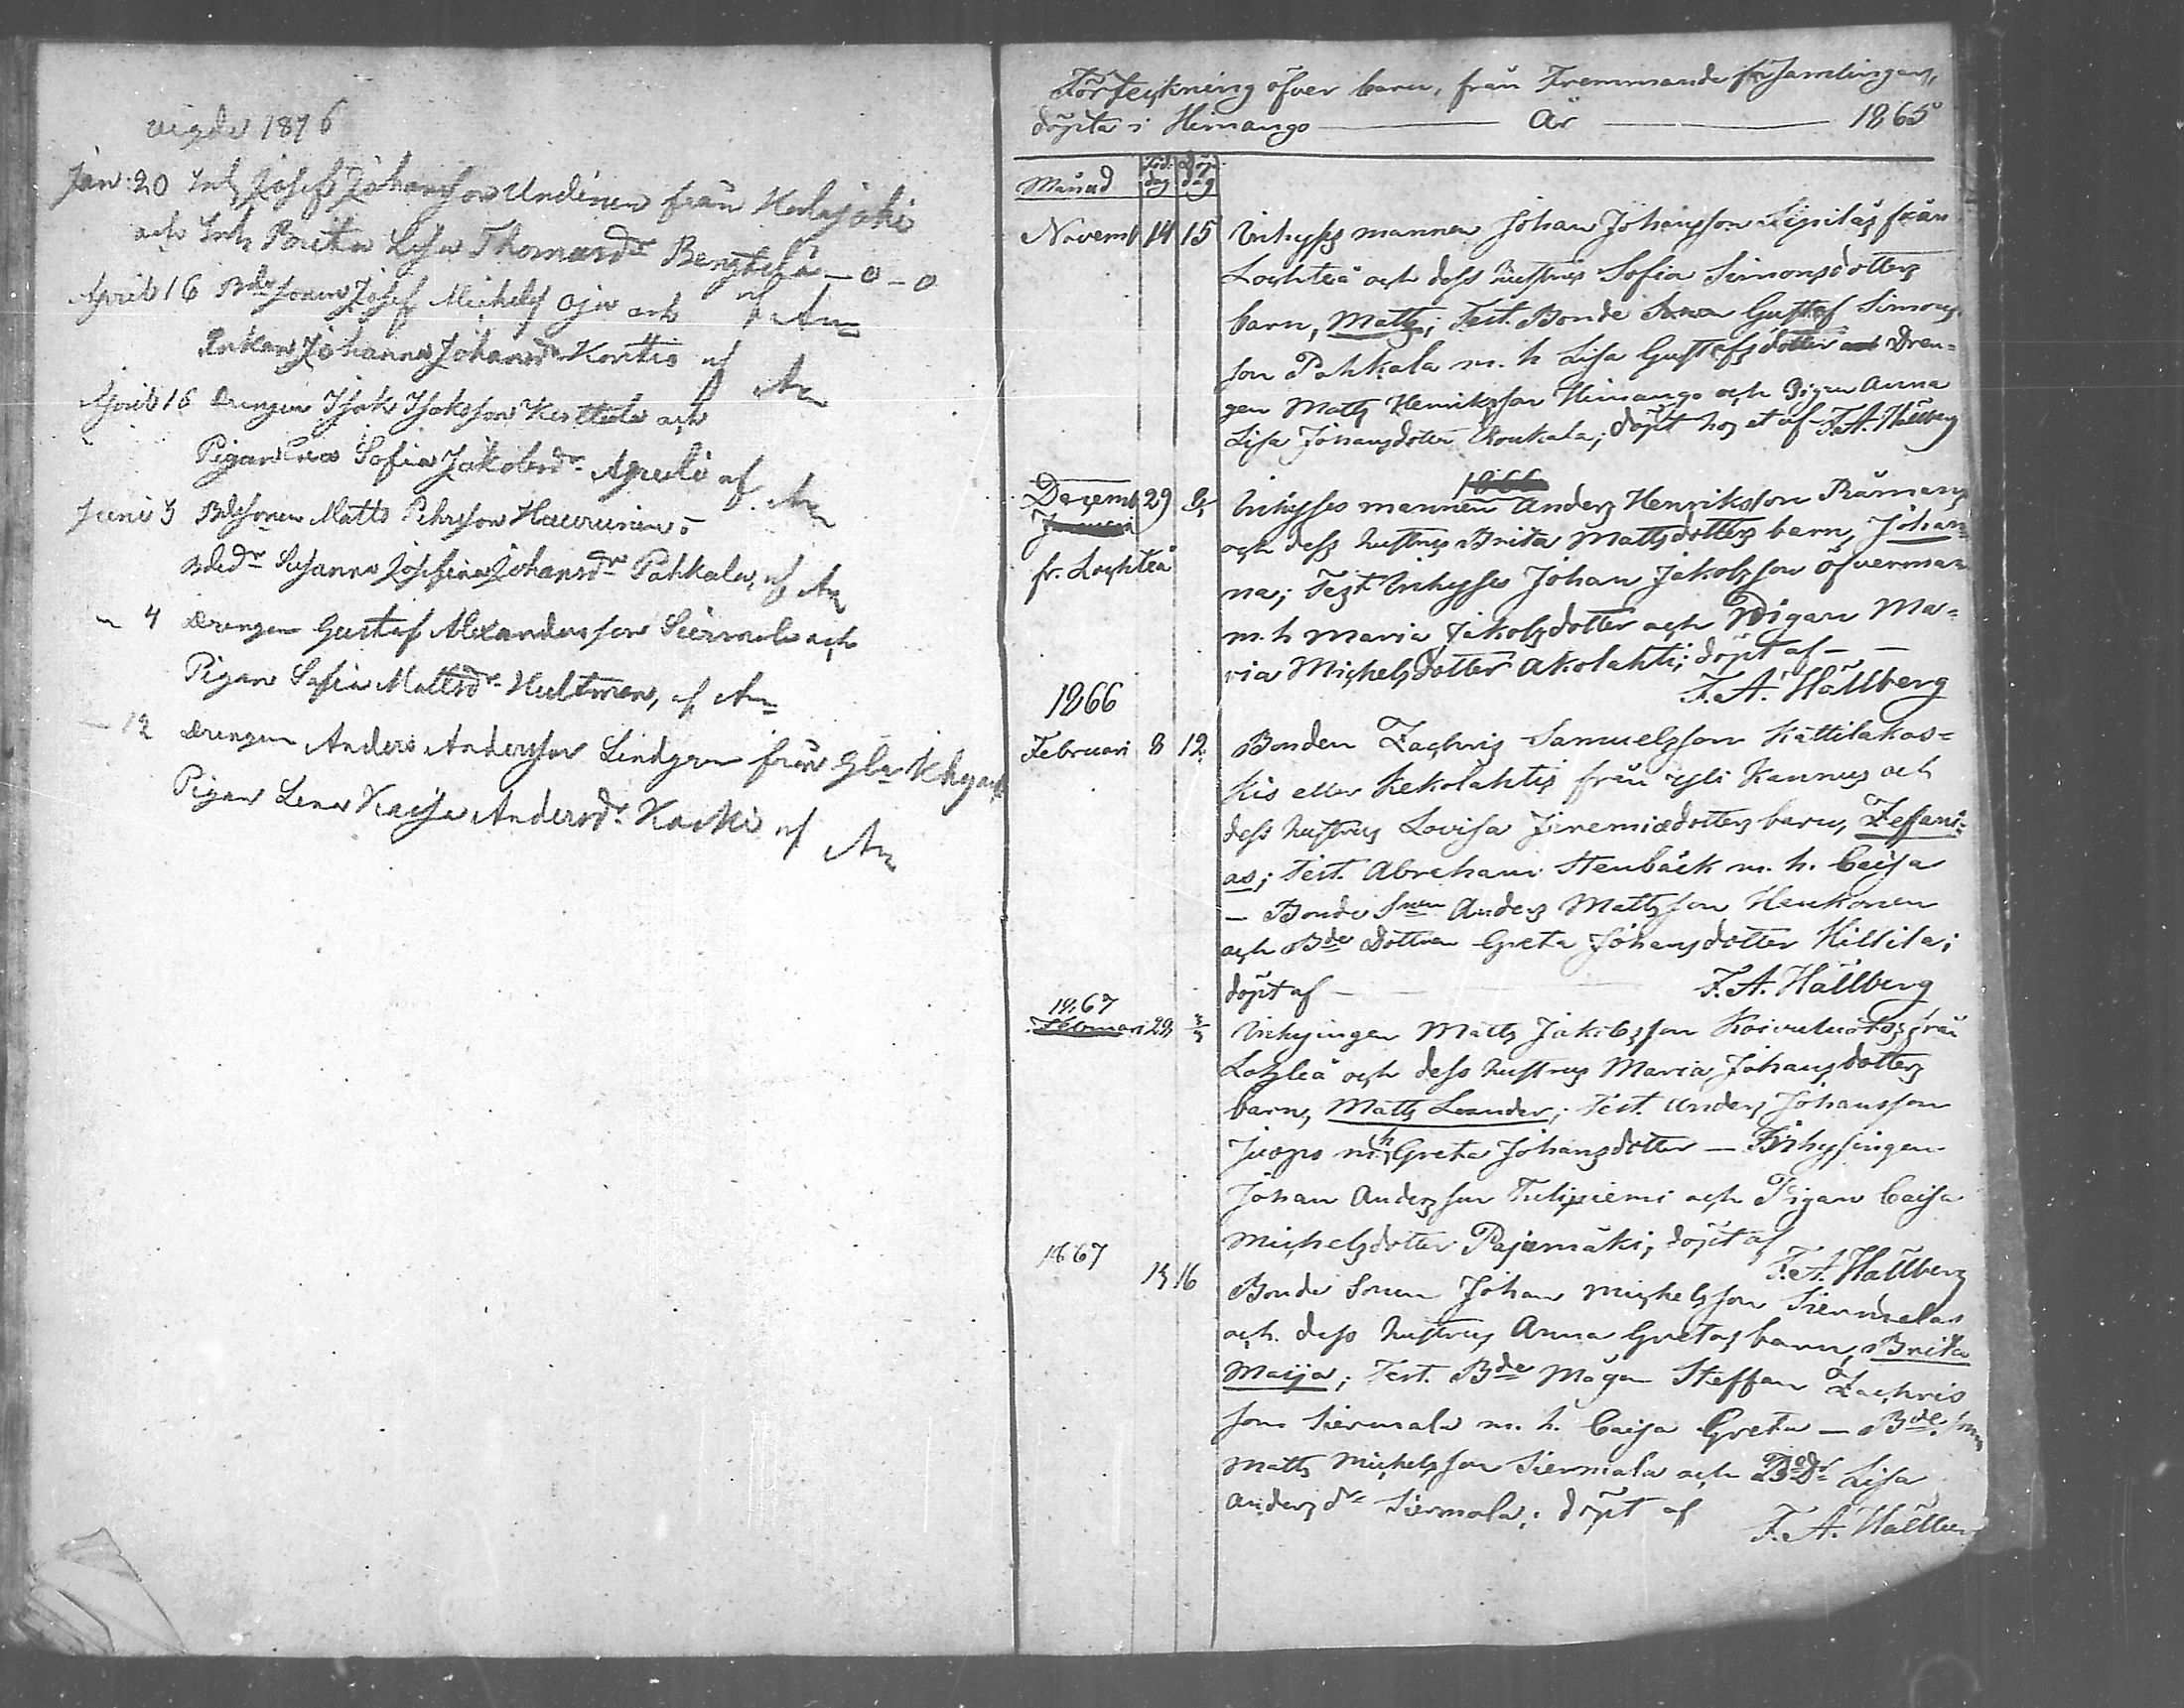 vigde 1876
Jan: 20 Inh Josef Johansson Undinen från Kalajoki
och Inh Brita Lisa Thomasdr Bengtelä — o — o
April 16 Bdesonen Josef Michels Oja och af An
Enkan Johanna Johansdr Kontio af An
April 16 Drengen Isak Isaksson Kerttula och
Pigan Sofia Jakobsdr af An
Juni 3 Bdesonen Matts Pehrsson
Bdedr Susanna Josefina Johansdr Pahkala, af An
" 4 Drengen Gustaf Alexandersson Siermala och
Pigan Sofia Mattsdr Hultman, af An
— 12 Drengen Anders Andersson Lindgren från Gla
Pigan Lena Kajsa Andersdr Koski af An
Förteckning öfver barn, från Fremmande församlingar,
döpta i Himango — År — 1865
Månad Föd: dag Döp: dag
Novemb 14 15 Inhyses mannen Johan Johansson från
Lochteå och dess hustrus Sofia Simonsdotters
barn, Matts; Test. Bonde Sonen Gustaf Simons
son Pahkala m. h Lisa Gustafsdotter Dren=
gen Matts Henriksson Himango och Pigan Anna
Lisa Johansdotter; döpt af F.A. Hällberg
1866
Decemb 29 Inhyses mannen Anders Henriksson Rämans
Januari och dess hustrus Brita Mattsdotters barn, Johan=
fr. Lochteå
na; Test Inhyses Johan Jakobsson öfverman
m. h Maria Jakobsdotter och Pigan Ma=
ria Michelsdotter Akolahti; döpt af — —
F. A. Hällberg
1866
Februari 8 12 Bonden Zachris Samuelsson Kattilakos=
kis eller Kekolahtis från Yli Kannus och
dess hustrus Lovisa Jeremiædotters barn, Zefani=
as; Test. Abraham Stenbäck m. h. Caisa
— Bonde Snen Anders Mattsson Heukonen
och Bde Dottren Greta Johansdotter Hillilä;
döpt af — F. A. Hällberg
1867
Februari 28 3/3 Inhysingen Matts Jakobsson Koivuluotos från
Lochteå och dess hustrus Maria Johansdotters
barn, Matts Leander; Test. Anders Johansson
Juops m. h Greta Johansdotter — Inhysingen
Johan Andersson Tulipiemi och Pigan Caisa
Michelsdotter Pajamäki; döpt af
F. A. Hällberg
1867
15 16 Bonde Sonen Johan Michelsson Siermalas
och dess hustrus Anna Gretas barn, Brita
Maija; Test. Bde Mågen Steffan Zachris
son Siermala m. h. Caisa Greta — Bde. Snen
Matts Michelsson Siermala och BdeDr Lisa
Andersdr Siermala; döpt af
F. A. Hällberg